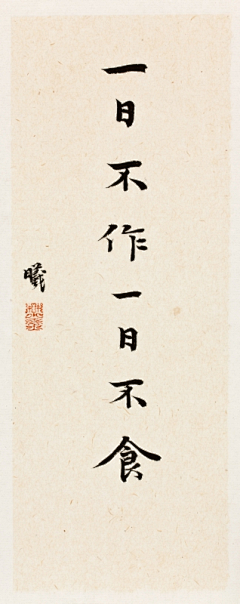 一日不作一日不食
曦